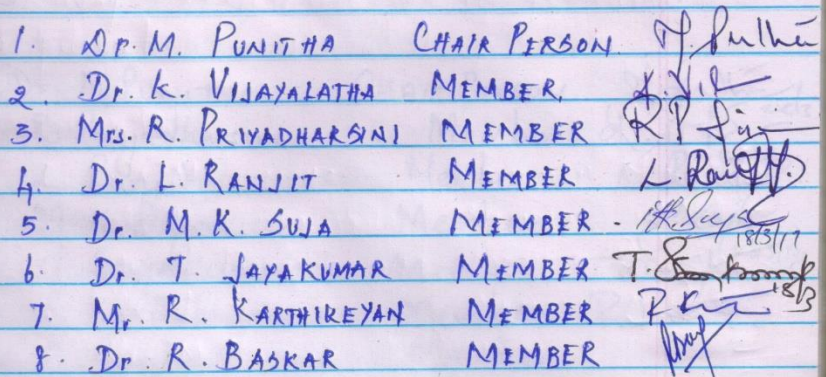 1. Dr. M. PUNITHA CHAIR PERSON
2. Dr. K. VIJAYALATHA MEMBER.
3. Mrs. R. PRIYADHARSINI MEMBER
4. Dr. L. RANJIT MEMBER
5. Dr. M. K. SUJA MEMBER - 18/3/17
6. Dr. T. JAYAKUMAR MEMBER 18/3
7. Mr. R. KARTHIKEYAN MEMBER
8. Dr. R. BASKAR MEMBER